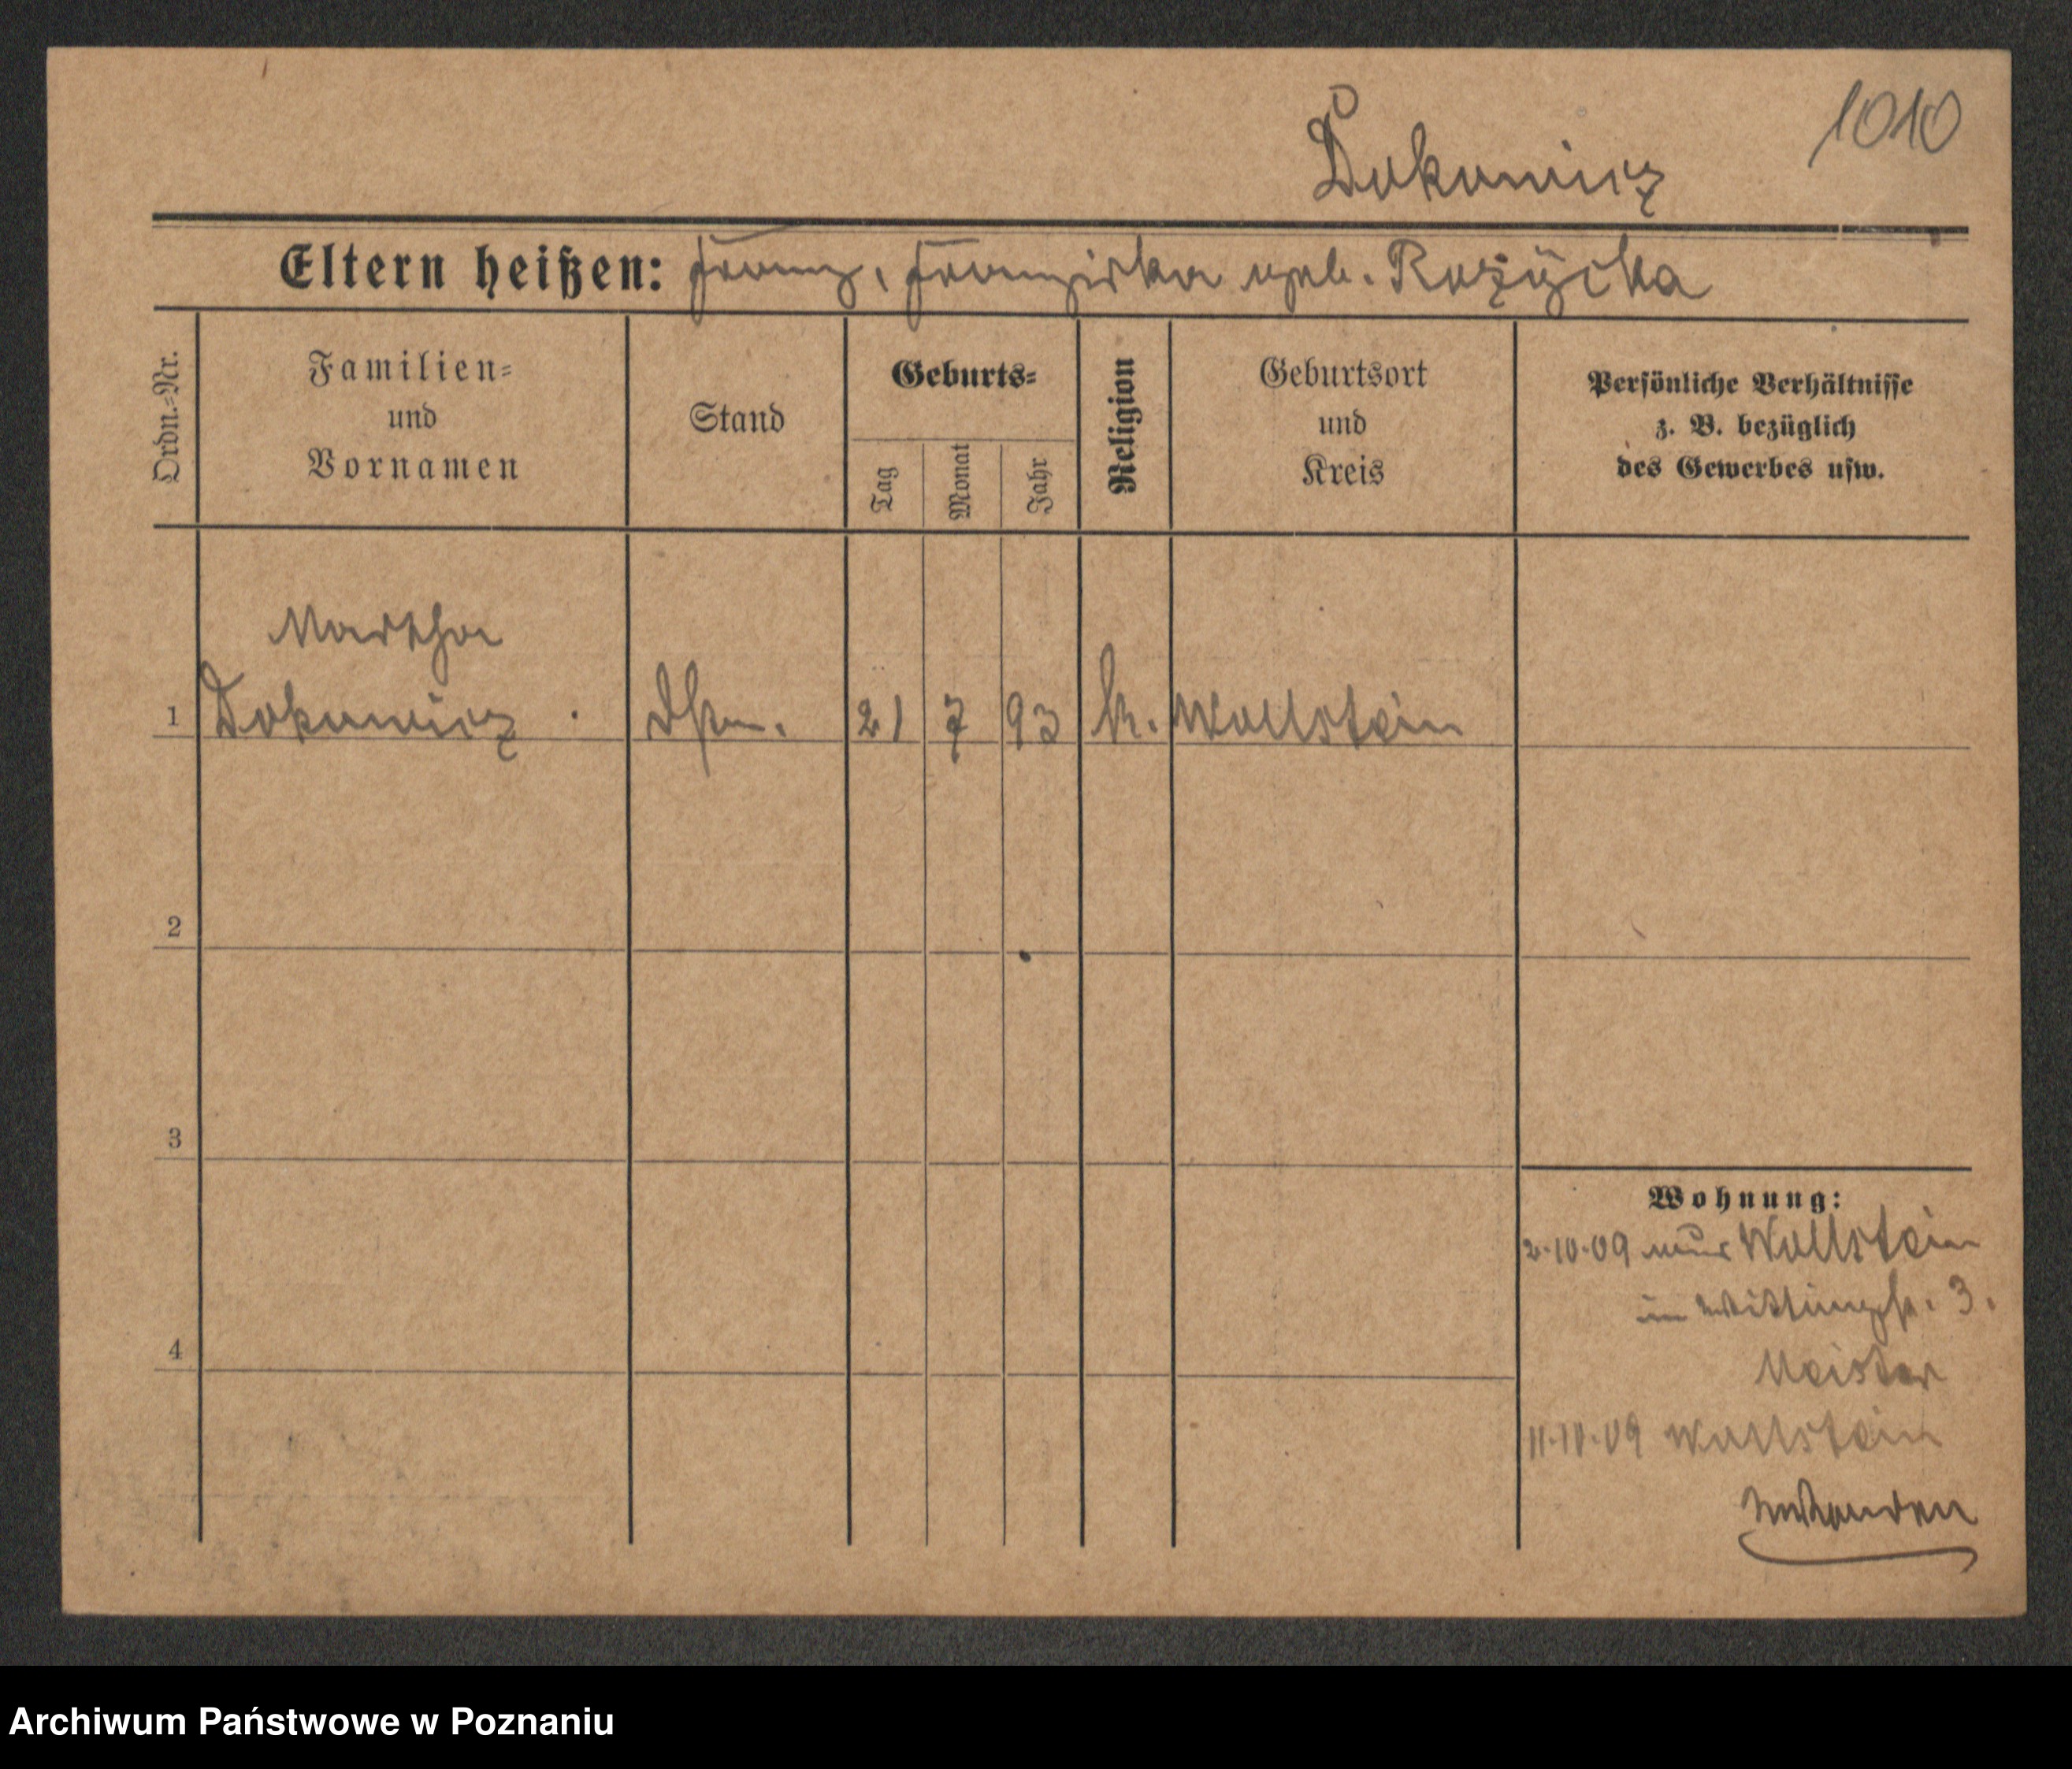 1010
Dokowicz
Eltern heißen: Franz, Franziska geb. Rożycka
Ordn.-Nr.
Familien-
und
Vornamen
Stand
Geburts-
Tag
Monat
Jahr
Religion
Geburtsort
und
Kreis
Persönliche Verhältnisse
z. B. bezüglich
des Gewerbes usw.
Martha
1 Dokowicz 21 7 93 k. Wollstein
2
3
4
Wohnung:
2.10.09 aus Wollstein
3.
Meister
11.10.09 Wollstein
Archiwum Państwowe w Poznaniu